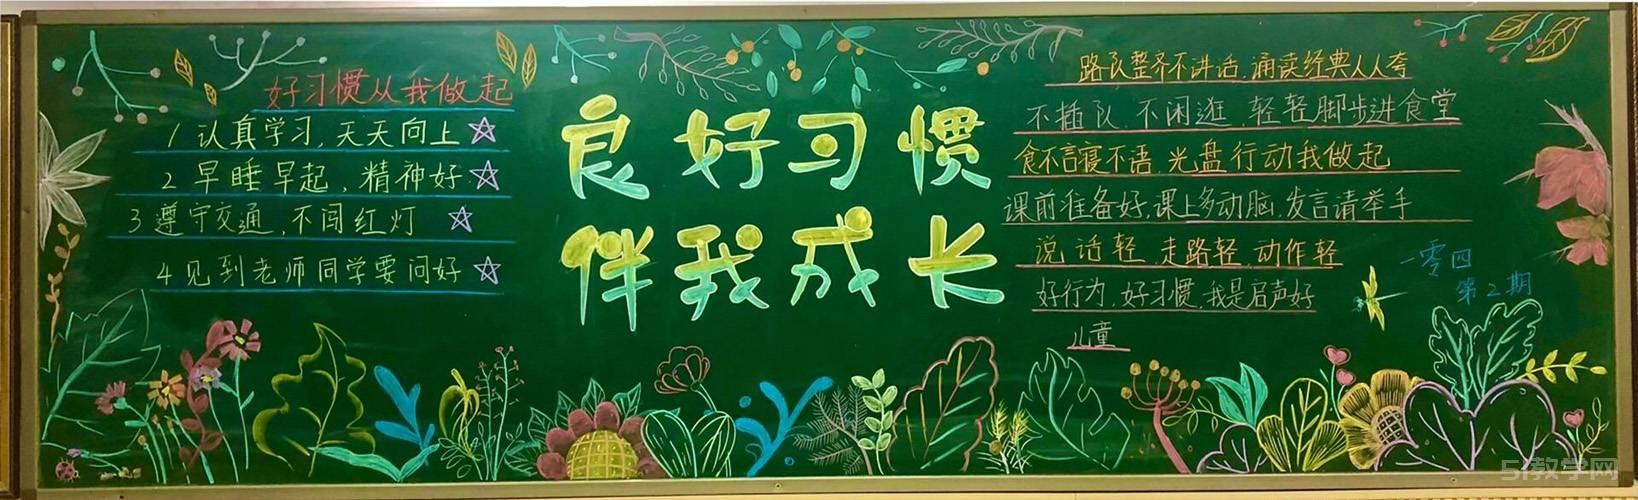 好习惯从我做起
1 认真学习,天天向上
2 早睡早起,精神好
3 遵守交通,不闯红灯
4 见到老师同学要问好
良好习惯
伴我成长
路队整齐不讲话,诵读经典人人夸
不插队,不闲逛,轻轻脚步进食堂
食不言寝不语,光盘行动我做起
课前准备好,课上多动脑,发言请举手
说话轻,走路轻,动作轻
好行为,好习惯,我是启声好
儿童
一零四
第2期
51教学网